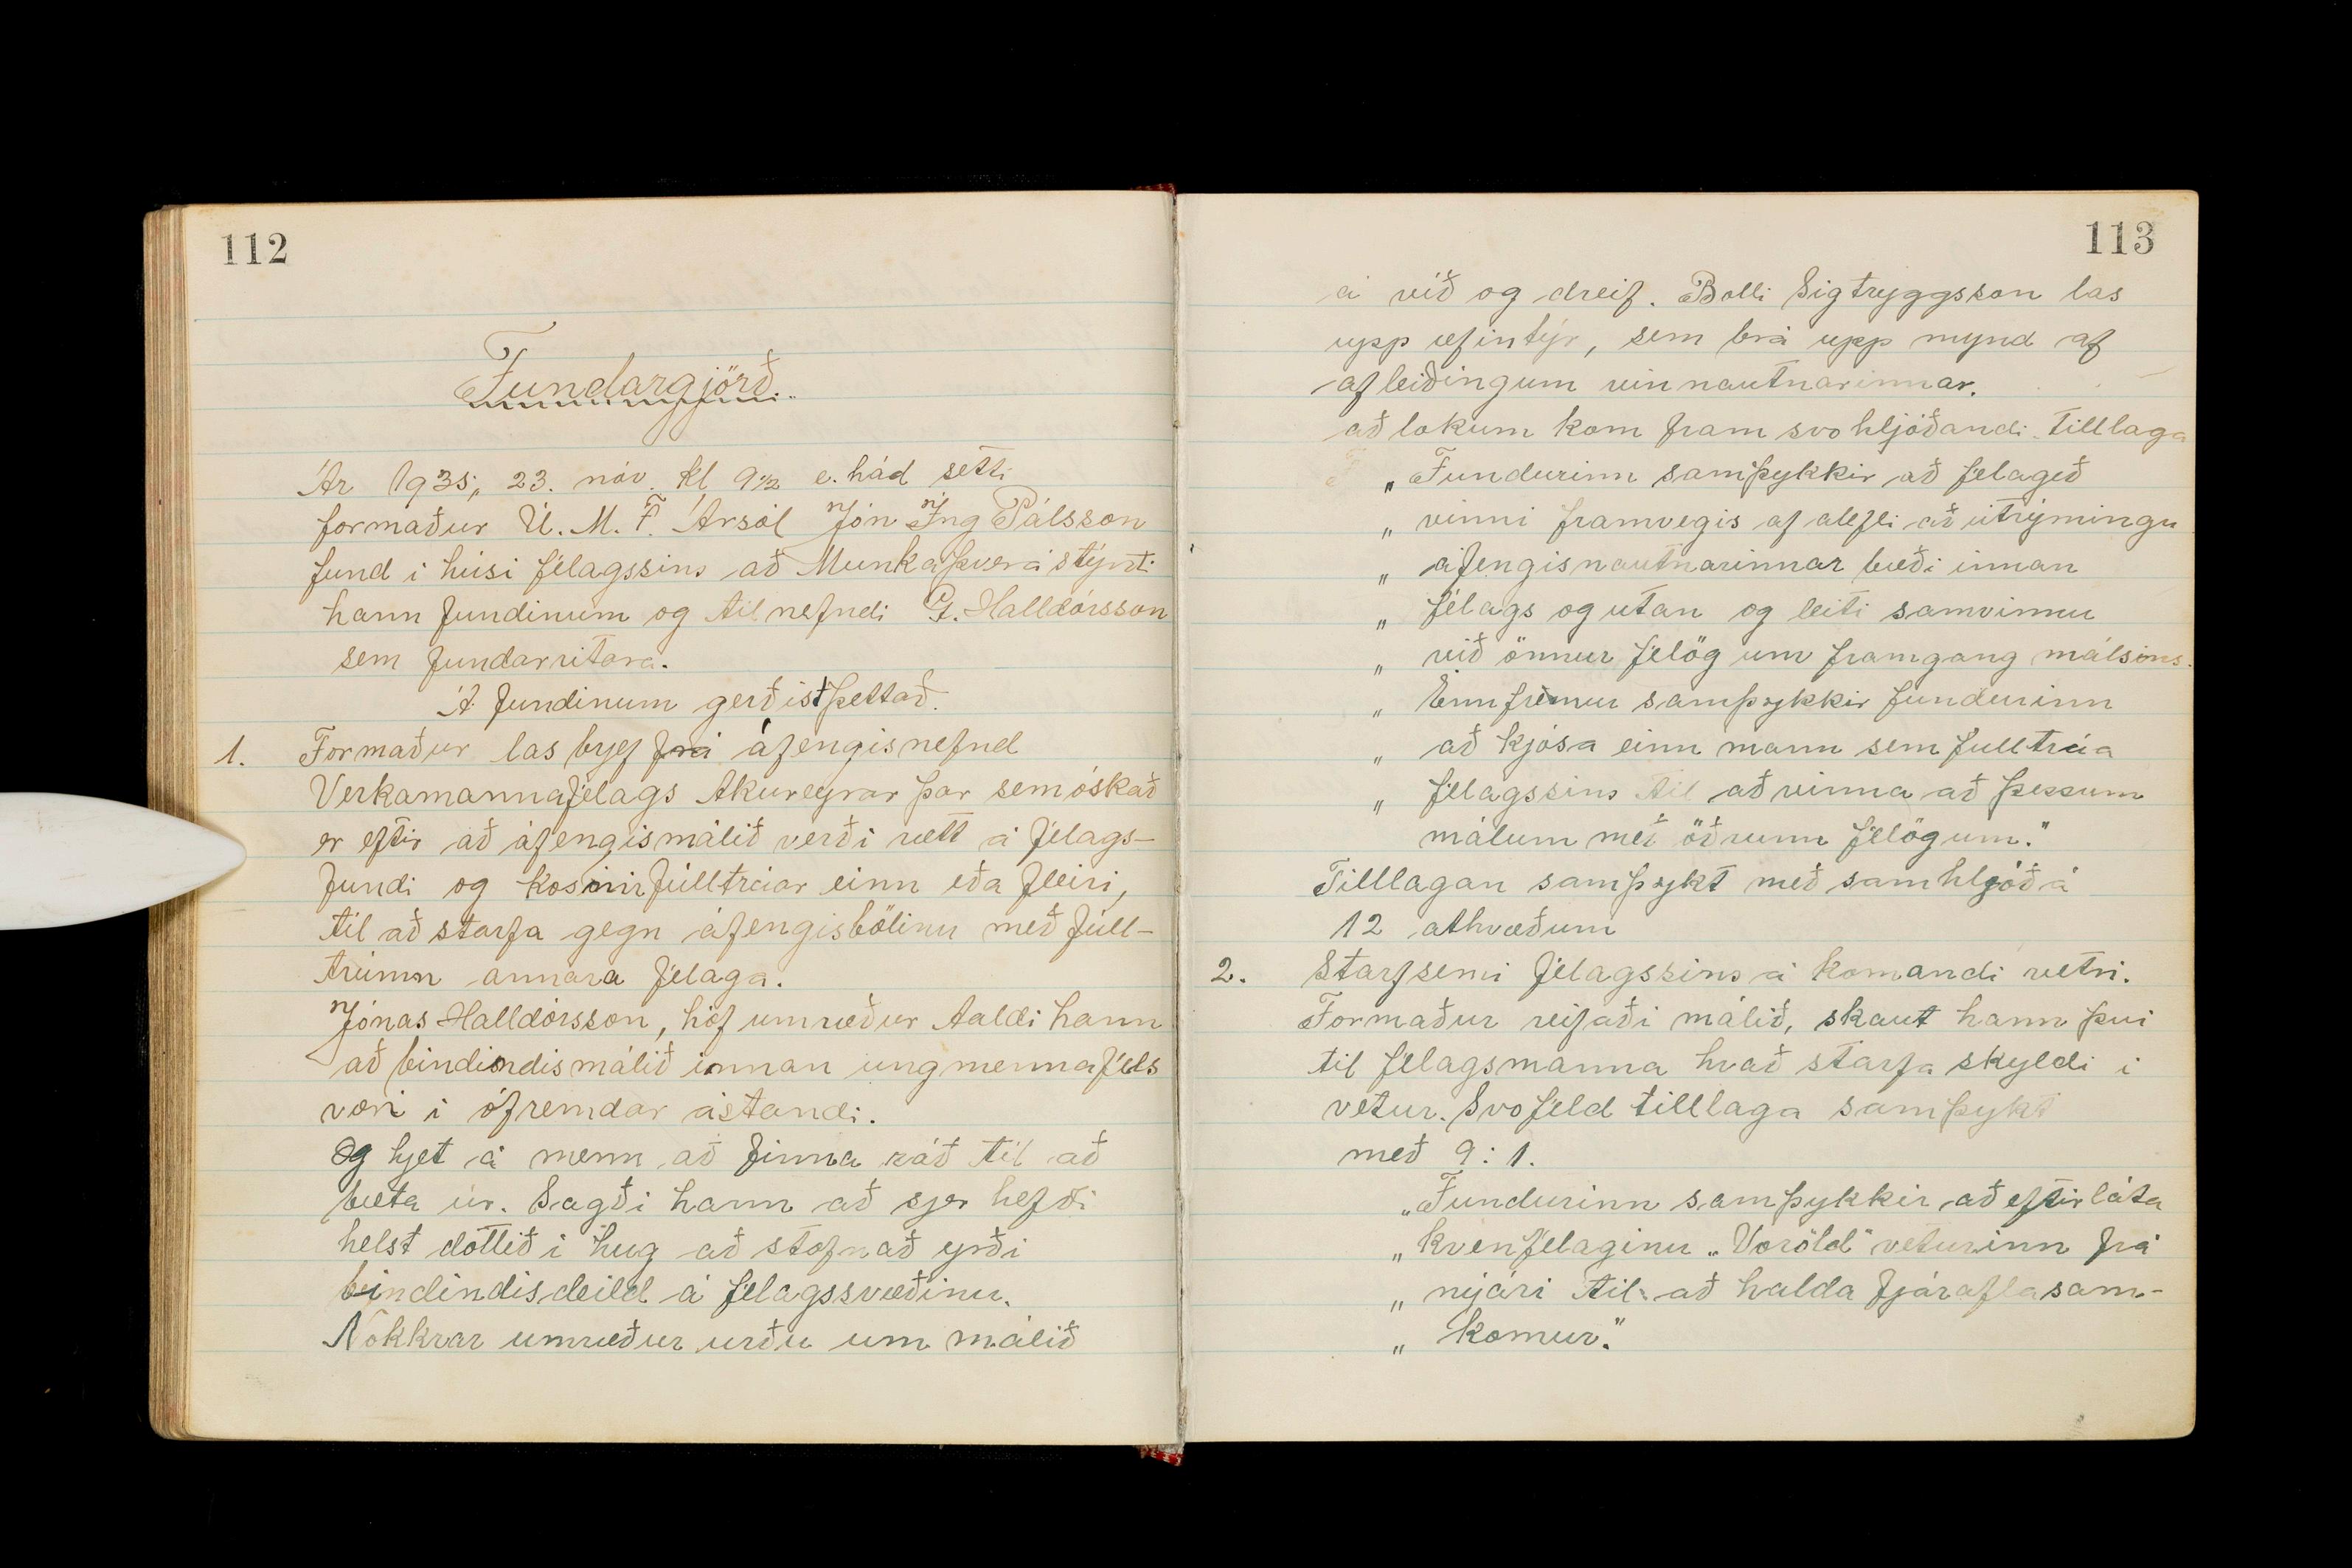 112
Fundargjörð.
Ár 1935, 23. nóv. kl 9½ e. hád setti
formaður U. M. F. Ársól Jón Ing Pálsson
fund i húsi félagssins að Munkaþverá stýrði
hann fundinum og tilnefndi G. Halldórsson
sem fundarritara.
Á fundinum gerðist þettað.
1. Formaður las bref frá áfengisnefnd
Verkamannafélags Akureyrar þar sem óskað
er eftir að áfengismálið verði rætt á félags-
fundi og kosnir fulltrúar einn eða fleiri,
til að starfa gegn áfengisbölinu með full-
trúmn annara félaga.
Jónas Halldórsson, hóf umræður taldi hann
að bindindismálið innan ungmennafjels
væri i ófremdar ástandi.
Og hjet á menn að finna ráð til að
bæta úr. Sagði hann að sjer hefði
helst dottið i hug að stofnað yrði
bindindisdeild á félagssvæðinu.
Nokkrar umræður urðu um málið
113
á við og dreif. Bolli Sigtryggsson las
upp æfintýr, sem brá upp mynd af
afleiðingum vinnautnarinnar.
að lokum kom fram svo hljóðandi tilllaga
„ Fundurinn samþykkir að félagið
„ vinni framvegis af alefli að útrýmingu
„ áfengisnautnarinnar bæði innan
„ félags og utan og leiti samvinnu
„ við önnur félög um framgang málsins.
„ Ennfremur samþykkir fundurinn
„ að kjósa einn mann sem fulltrúa
„ félagssins til að vinna að þessum
málum með öðrum félögum."
Tilllagan samþykt með samhljóða
12 athvæðum
2. Starfsemi félagssins á komandi vetri.
Formaður reifaði málið, skaut hann þvi
til félagsmanna hvað starfa skyldi i
vetur. Svofeld tilllaga samþykt
með 9 : 1.
„Fundurinn samþykkir að eftirláta
„ kvenfélaginu „Voröld" veturinn frá
„ nýári til að halda fjáraflasam-
„ komur."